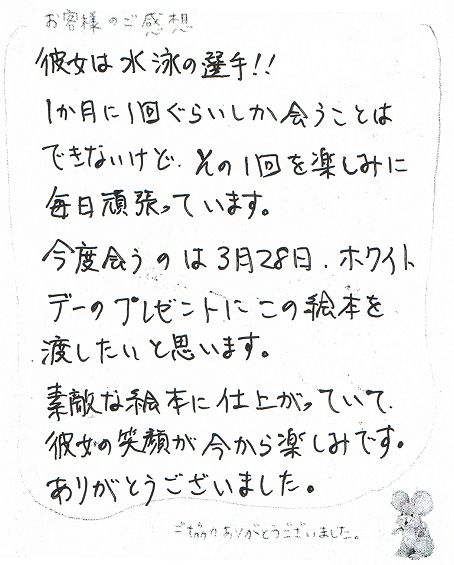 お客様のご感想
彼女は水泳の選手!!
1か月に1回ぐらいしか会うことは
できないけど、その1回を楽しみに
毎日頑張っています。
今度会うのは3月28日、ホワイト
デーのプレゼントにこの絵本を
渡したいと思います。
素敵な絵本に仕上がっていて、
彼女の笑顔が今から楽しみです。
ありがとうございました。
ご協力ありがとうございました。